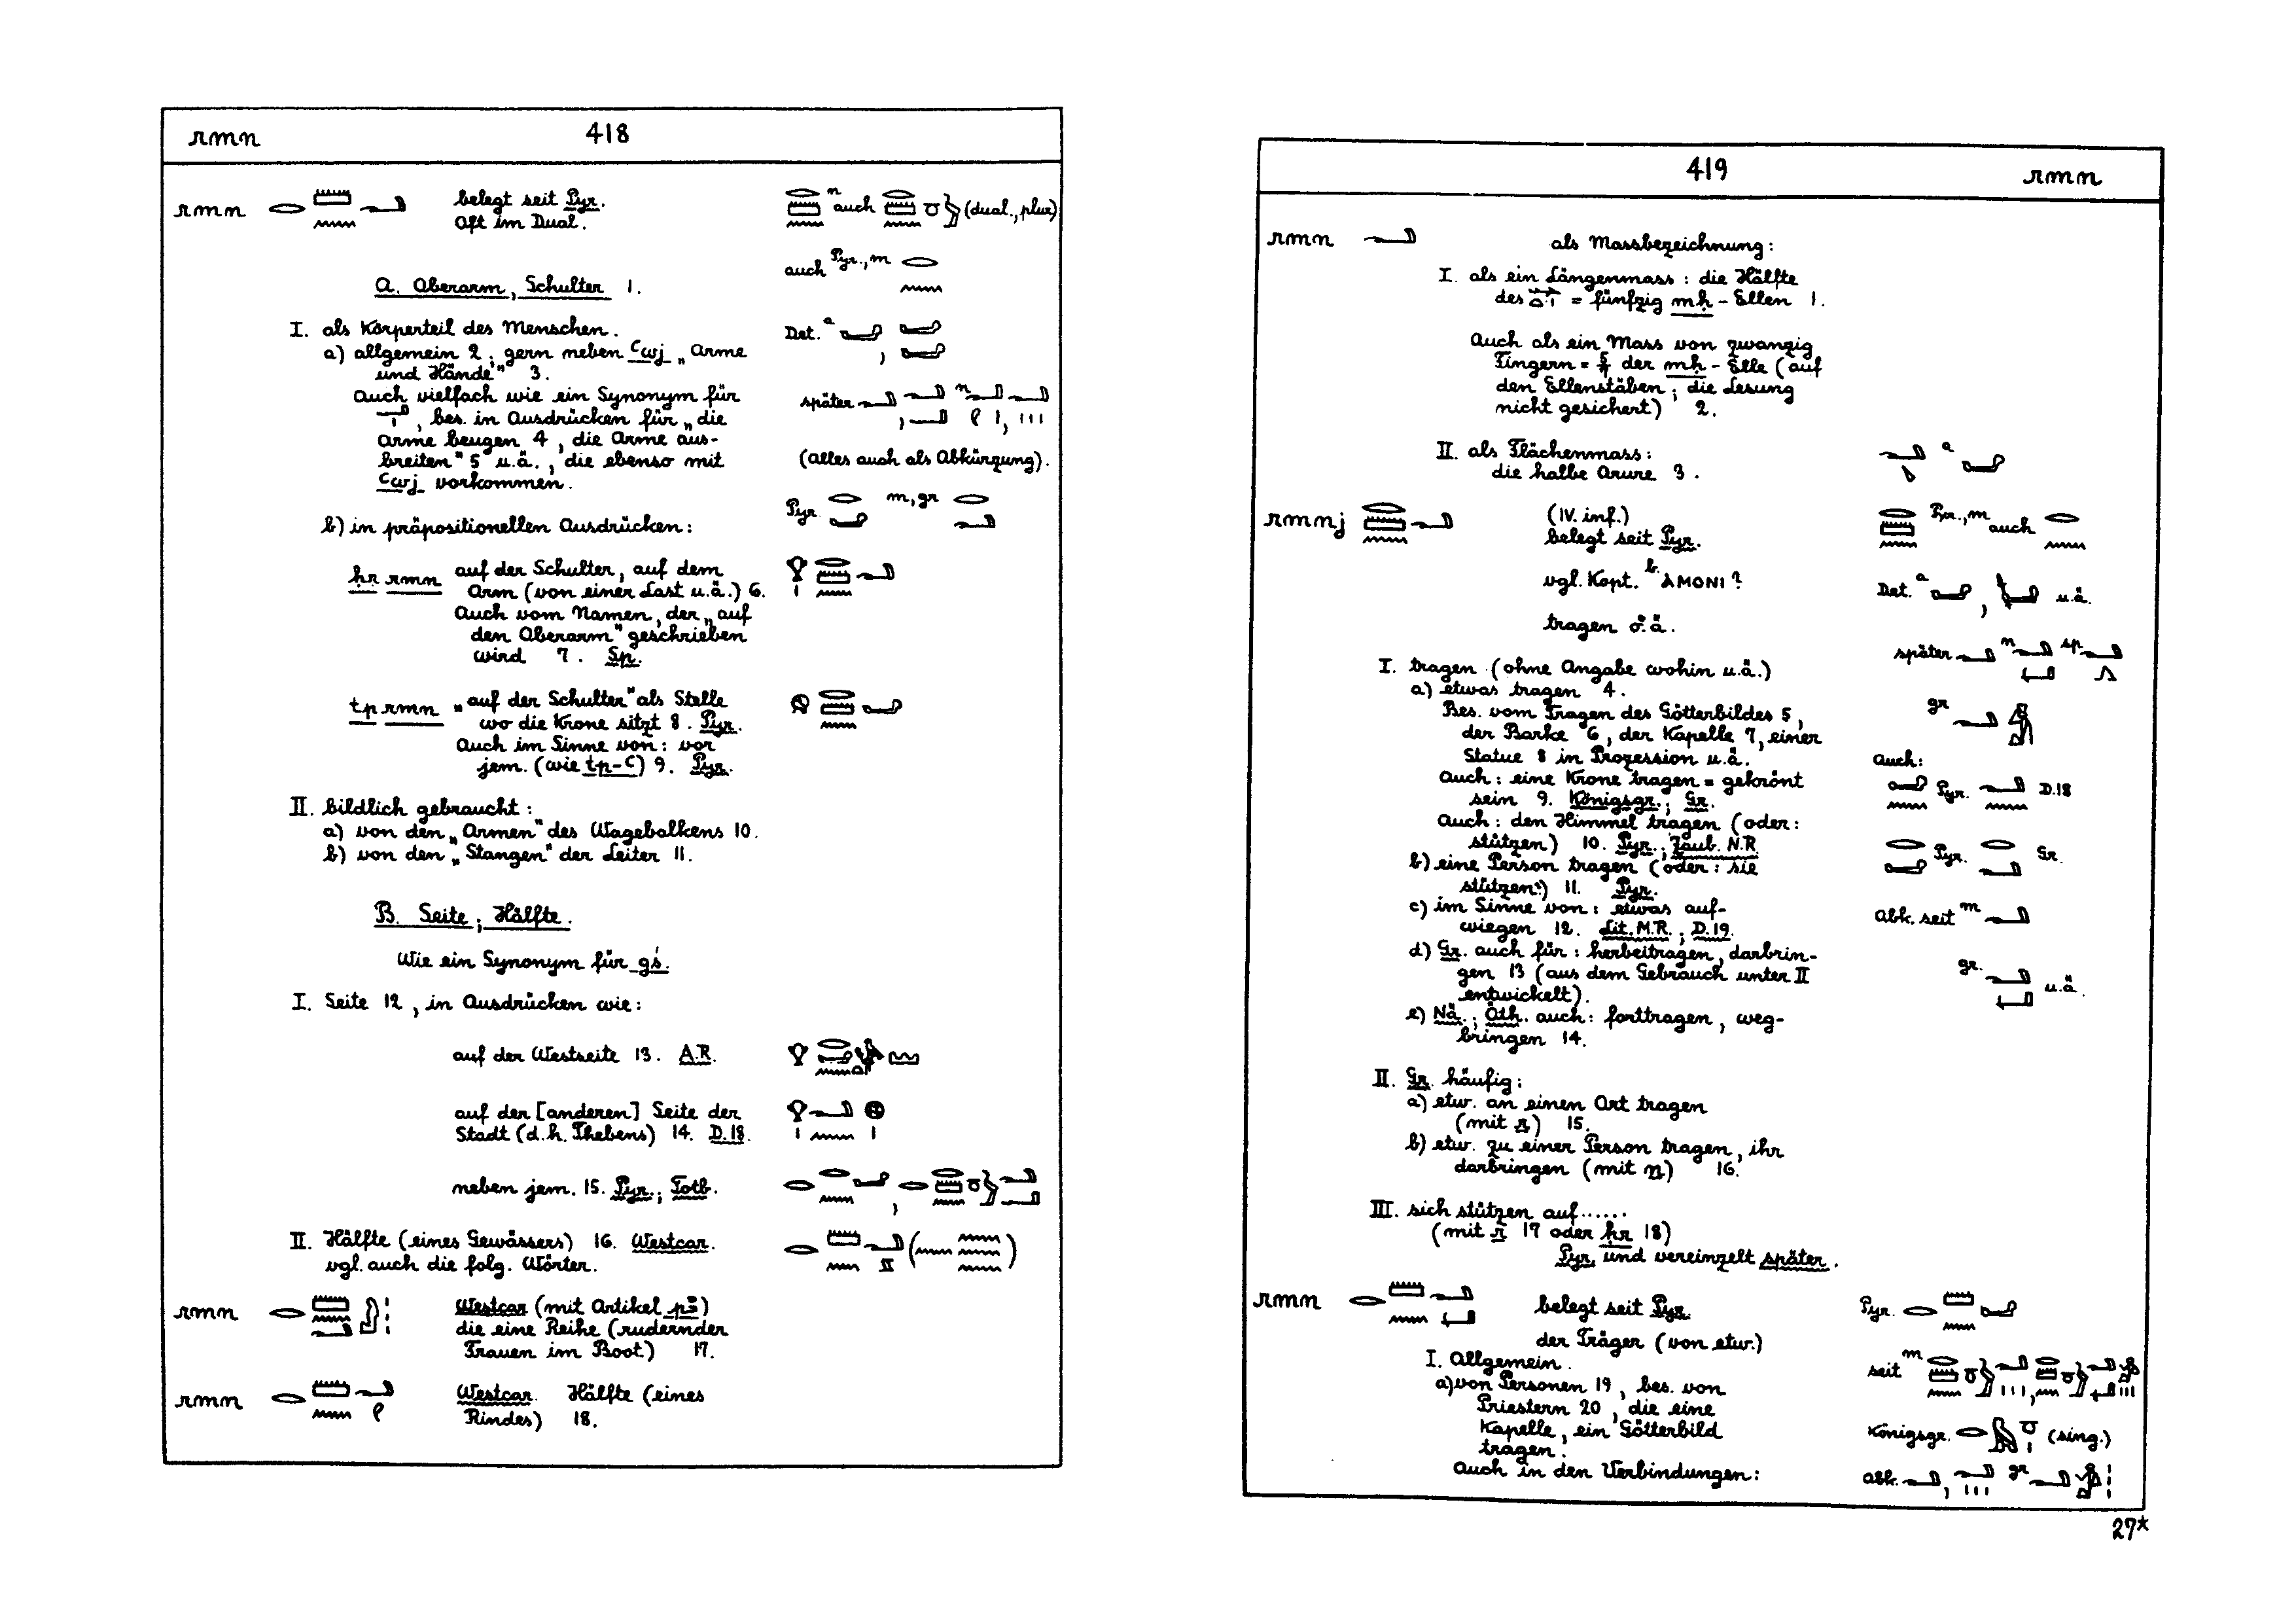 rmn 418
rmn belegt seit Pyr.
Oft im Dual.
n auch (dual., plur)
auch Pyr., m
A. Oberarm, Schulter 1.
I. als Körperteil des Menschen.
Det. a ,
a) allgemein 2; gern neben ꜥwj „Arme
und Hände" 3.
Auch vielfach wie ein Synonym für
später , n , 
, bes. in Ausdrücken für „die
Arme beugen 4, die Arme aus-
breiten" 5 u.ä., die ebenso mit
(Alles auch als Abkürzung).
ꜥwj vorkommen.
Pyr. m, gr
b) in präpositionellen Ausdrücken:
ḥr rmn auf der Schulter, auf dem
Arm (von einer Last u.ä.) 6.
Auch vom Namen, der „auf
den Oberarm" geschrieben
wird 7. Sp.
tp rmn „auf der Schulter" als Stelle
wo die Krone sitzt 8. Pyr.
Auch im Sinne von: vor
jem. (wie tp-ꜥ) 9. Pyr.
II. bildlich gebraucht:
a) von den „Armen" des Wagebalkens 10.
b) von den „Stangen" der Leiter 11.
B. Seite; Hälfte.
Wie ein Synonym für gś.
I. Seite 12, in Ausdrücken wie:
auf der Westseite 13. A.R.
auf der [anderen] Seite der
Stadt (d.h. Thebens) 14. D.18.
neben jem. 15. Pyr.; Totb.
II. Hälfte (eines Gewässers) 16. Westcar.
vgl. auch die folg. Wörter.
rmn Westcar (mit Artikel pꜣ)
die eine Reihe (rudernder
Frauen im Boot) 17.
rmn Westcar. Hälfte (eines
Rindes) 18.
419 rmn
rmn als Massbezeichnung:
I. als ein Längenmass: die Hälfte
des = fünfzig mḥ-Ellen 1.
Auch als ein Mass von zwanzig
Fingern = 5/7 der mḥ-Elle (auf
den Ellenstäben; die Lesung
nicht gesichert) 2.
II. als Flächenmass:
die halbe Arure 3.
a
rmnj (IV. inf.)
belegt seit Pyr.
Pyr., m auch
vgl. Kopt. b. ⲁⲙⲟⲛⲓ?
Det. a , u.ä.
tragen o.ä.
später n sp.
I. tragen (ohne Angabe wohin u.ä.)
a) etwas tragen 4.
Bes. vom Tragen des Götterbildes 5,
gr
der Barke 6, der Kapelle 7, einer
Statue 8 in Prozession u.ä.
Auch:
Auch: eine Krone tragen = gekrönt
sein 9. Königsgr.; Gr.
Pyr. D.18
Auch: den Himmel tragen (oder:
stützen) 10. Pyr.; Zaub. N.R.
Pyr. Gr.
b) eine Person tragen (oder: sie
stützen?) 11. Pyr.
c) im Sinne von: etwas auf-
wiegen 12. Lit. M.R.; D.19.
Abk. seit m
d) Gr. auch für: herbeitragen, darbrin-
gen 13 (aus dem Gebrauch unter II
entwickelt).
gr. u.ä.
e) Nä.; Äth. auch: forttragen, weg-
bringen 14.
II. Gr. häufig:
a) etw. an einen Ort tragen
(mit r) 15.
b) etw. zu einer Person tragen, ihr
darbringen (mit n) 16.
III. sich stützen auf ......
(mit r 17 oder ḥr 18)
Pyr. und vereinzelt später.
rmn belegt seit Pyr.
Pyr.
der Träger (von etw.)
I. Allgemein.
seit m
a) von Personen 19, bes. von
Priestern 20, die eine
Kapelle, ein Götterbild
tragen.
Königsgr. (sing.)
Auch in den Verbindungen:
Abk. , gr
27*